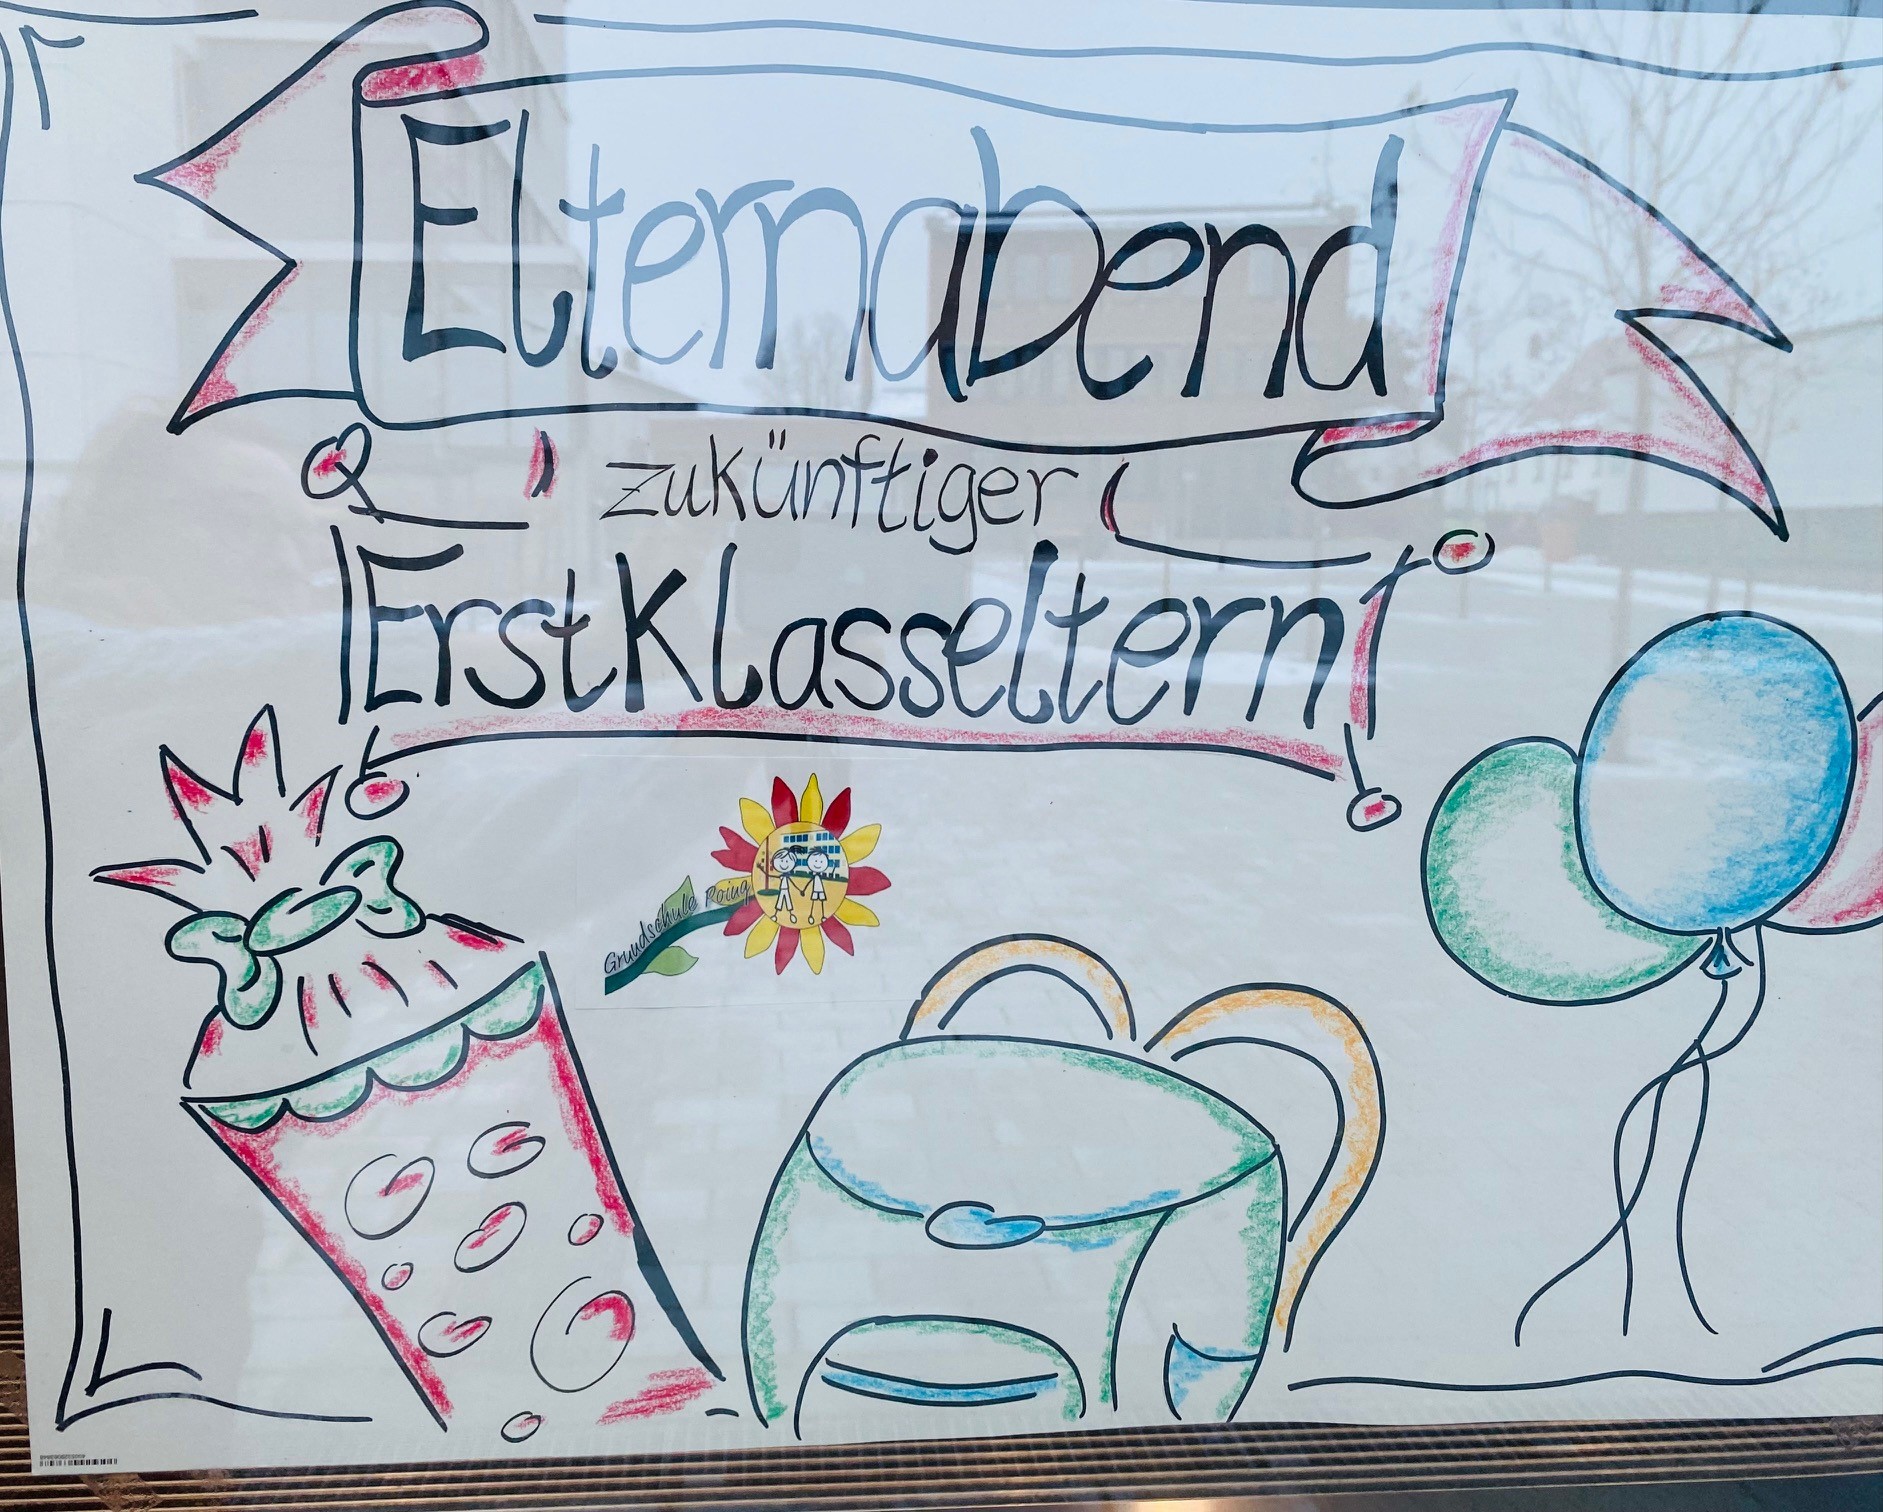 Elternabend
zukünftiger
Erstklasseltern
Grundschule Poing